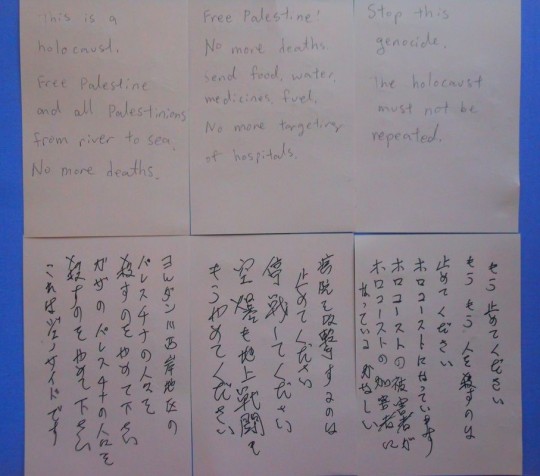 This is a
holocaust.
Free Palestine
and all Palestinians
from river to sea.
No more deaths.
Free Palestine!
No more deaths.
Send food, water,
medicines, fuel.
No more targeting
of hospitals.
Stop this
genocide.
The holocaust
must not be
repeated.
ヨルダン川西岸地区の
パレスチナの人々を
殺すのをやめて下さい
ガザのパレスチナの人々を
殺すのをやめて下さい
これはジェノサイドです
病院を攻撃するのは
止めてください
停戦してください
空爆も地上戦闘も
もうやめてください
もう止めてください
もうもう人を殺すのは
止めてください
ホロコーストになっています
ホロコーストの被害者が
ホロコーストの加害者に
なっている